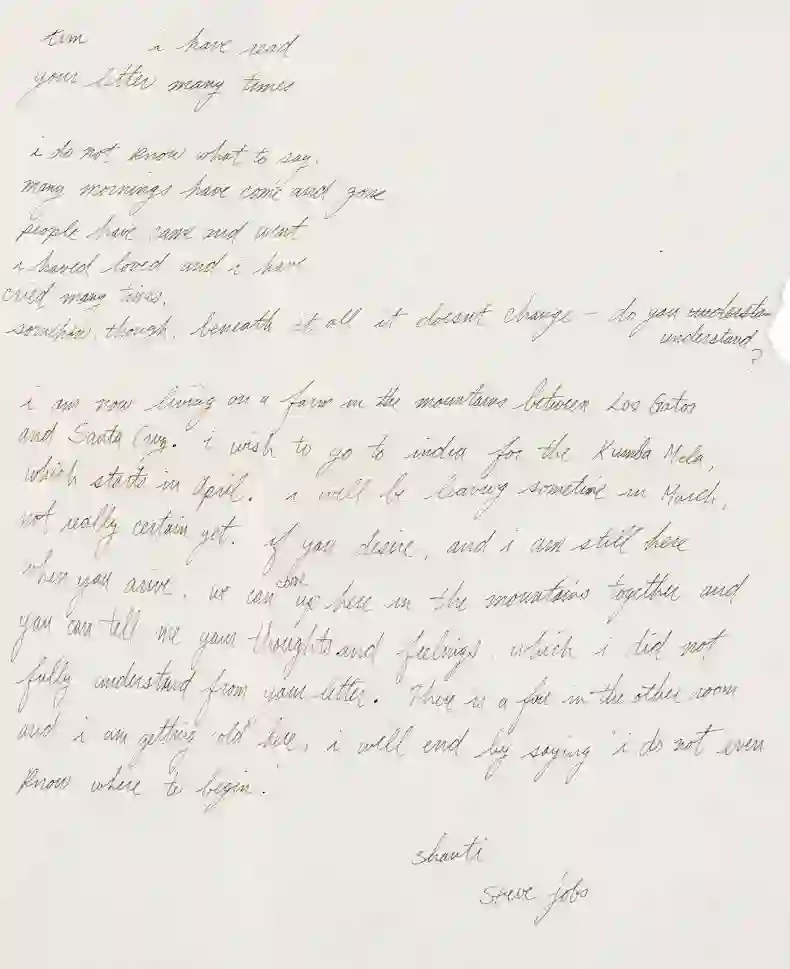 tim i have read
your letter many times
i do not know what to say.
many mornings have come and gone
people have came and went
i haved loved and i have
cried many times.
somehow, though, beneath it all it doesn't change – do you understa
understand
?
i am now living on a farm in the mountains between Los Gatos
and Santa Cruz. i wish to go to india for the Kumba Mela,
which starts in April. i will be leaving sometime in March,
not really certain yet. if you desire, and i am still here
when you arive, we can up here in the mountains together and
you can tell me your thoughts and feelings, which i did not
fully understand from your letter. There is a fire in the other room
and i am getting old here, i will end by saying i do not even
know where to begin.
shanti
steve jobs